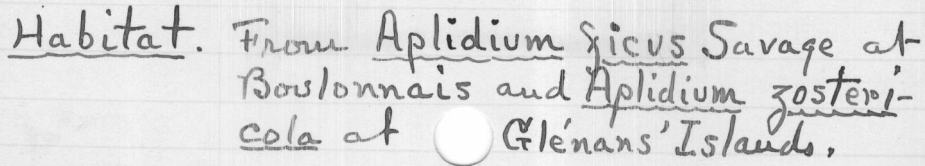 Habitat. From Aplidium ficus Savage at
Boulonnais and Aplidium zosteri-
cola at Glénans' Islands.